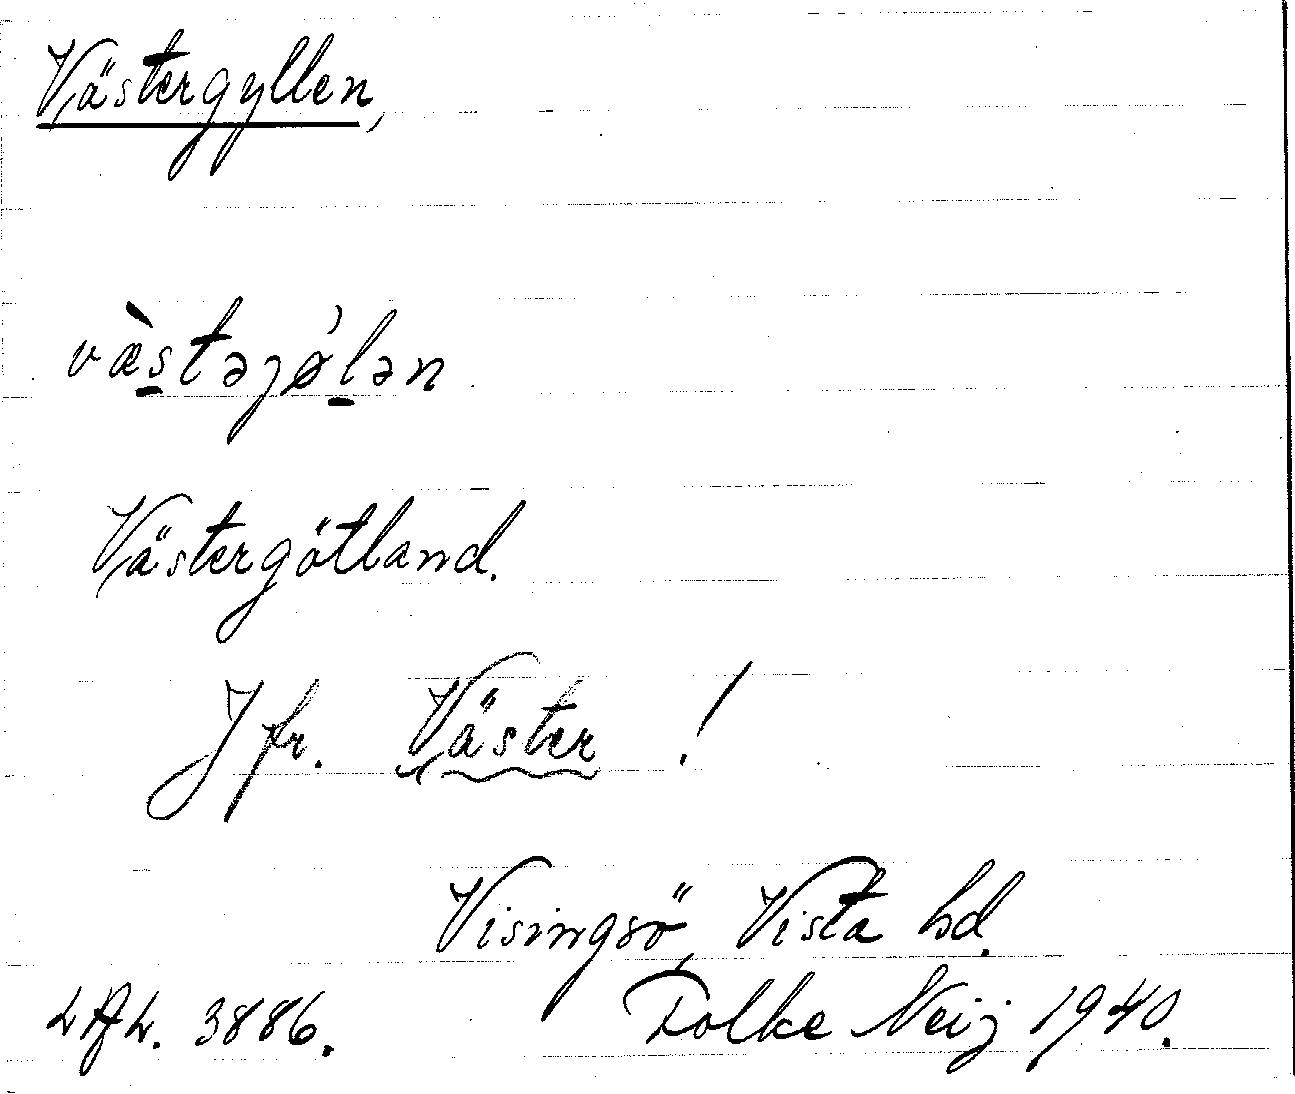 Västergyllen,
væ̀s̲təjǿl̲ən
Västergötland.
Jfr. Väster !
Visingsö, Vista hd.
LAL. 3886. Folke Neij 1940.